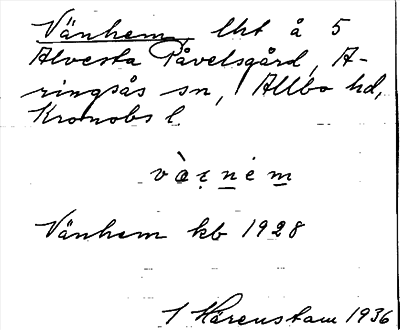 Vänhem, lht å 5
Alvesta Påvelsgård, A-
ringsås sn, Allbo hd,
Kronobs l.
Vänhem kb 1928
I Hårenstam 1936